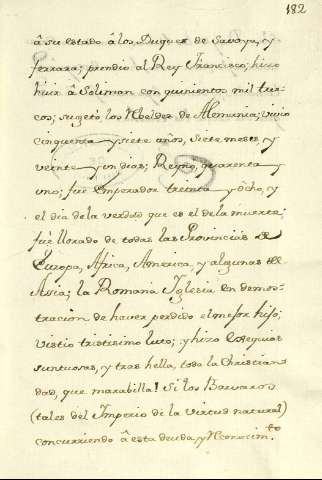 182
â su estado â los Duques de Savoya, y
ferrara; prendio al Rey Francisco; hizo
huir â Soliman con quinientos mil tur-
cos; sugeto los Rebeldes de Alemania; vivio
cinquenta y siete años, siete meses, y
veinte y un dias; Reyno quarenta y
uno; fue Emperador treinta y ôcho, y
el dia de la verdad que es el de la muerte,
fue llorado de todas las Provincias de
Europa, Africa, America, y algunas de
Asia; la Romana Iglesia en demos-
tracion de haver perdido el mejor hijo;
vistio tristisimo luto; y hizo exequias
suntuosas, y tras hella, toda la Christian-
dad, que marabilla! Si los Barvaros
(tales del Imperio de la virtud natural)
concurriendo â esta deuda, y Reconocim.to